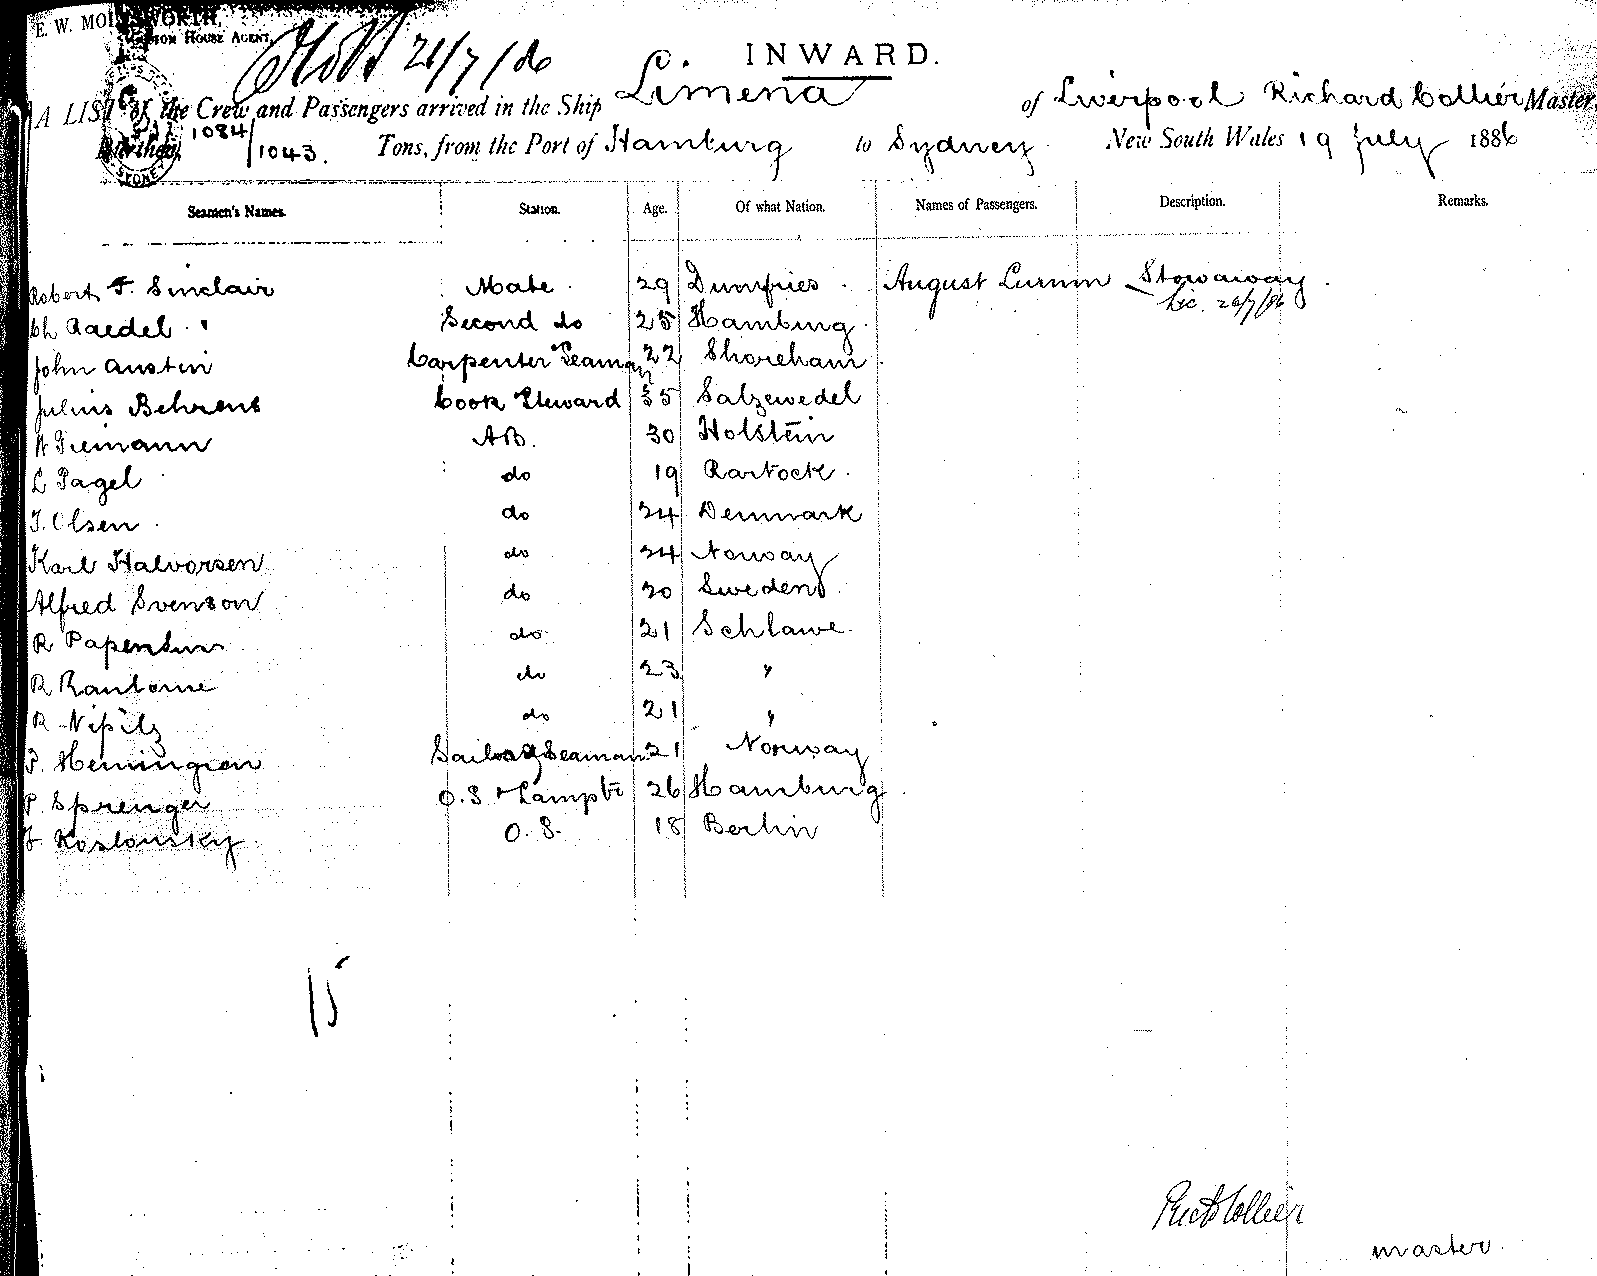 E. W. MOLESWORTH,
CUSTOM HOUSE AGENT,
21/7/86
INWARD.
A LIST of the Crew and Passengers arrived in the Ship Limena of Liverpool Richard Collier Master,
Burthen, 1084/1043. Tons, from the Port of Hamburg to Sydney New South Wales 19 July 1886
Seamen's Names. Station. Age. Of what Nation. Names of Passengers. Description. Remarks.
Robert F. Sinclair Mate 29 Dumfries August Lumm Stowaway
Ch Raedel Second do 25 Hamburg
John Austin Carpenter Seaman 22 Shoreham
Julius Behrens Cook Steward 35 Salzwedel
Tiemann AB. 30 Holstein
L Pagel do 19 Rartock
T. Olsen do 24 Denmark
Karl Halvorsen do 24 Norway
Alfred Svenson do 20 Sweden
R do 21 Schlawe
R do 23 "
R Nipitz do 21 "
Seaman 21 Norway
P. Sprenger O.S & Lampt 26 Hamburg
Koslousky O.S. 18 Berlin
15
Richd Collier
master